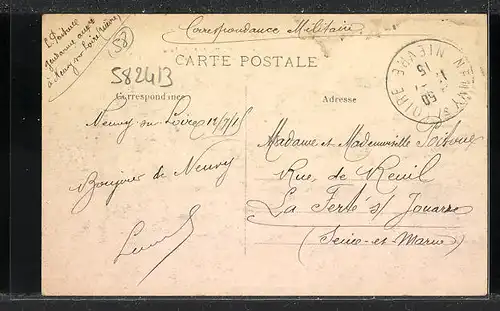 Correspondance Militaire
(58)
CARTE POSTALE
582413
Correspondance
Adresse
NEUVY S LOIRE
NIEVRE
15
Neuvy-sur-Loire 12/7/15
Bonjour de Neuvy
Madame et Mademoiselle
Rue de Reuil
La Ferté s/ Jouarre
(Seine-et-Marne)
à Neuvy-sur-Loire (Nièvre)